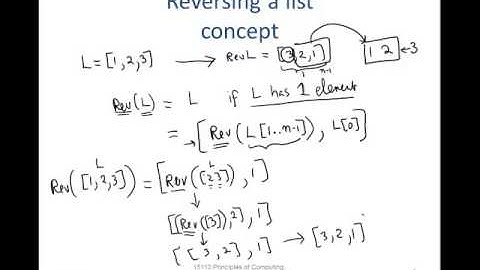 Reversing a list
concept
L = [1,2,3] → RevL = [3,2,1] 1 2 ← 3
n-1
Rev(L) = L if L has 1 element
= → [Rev(L[1..n-1]), L[0]]
L L
Rev([1,2,3]) = [Rev([2 3]), 1]
[[Rev([3]), 2], 1]
[[3, 2], 1] → [3,2,1]
15110 Principles of Computing